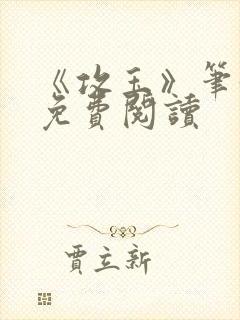 《攻玉》筆
免費閱讀
賈立新